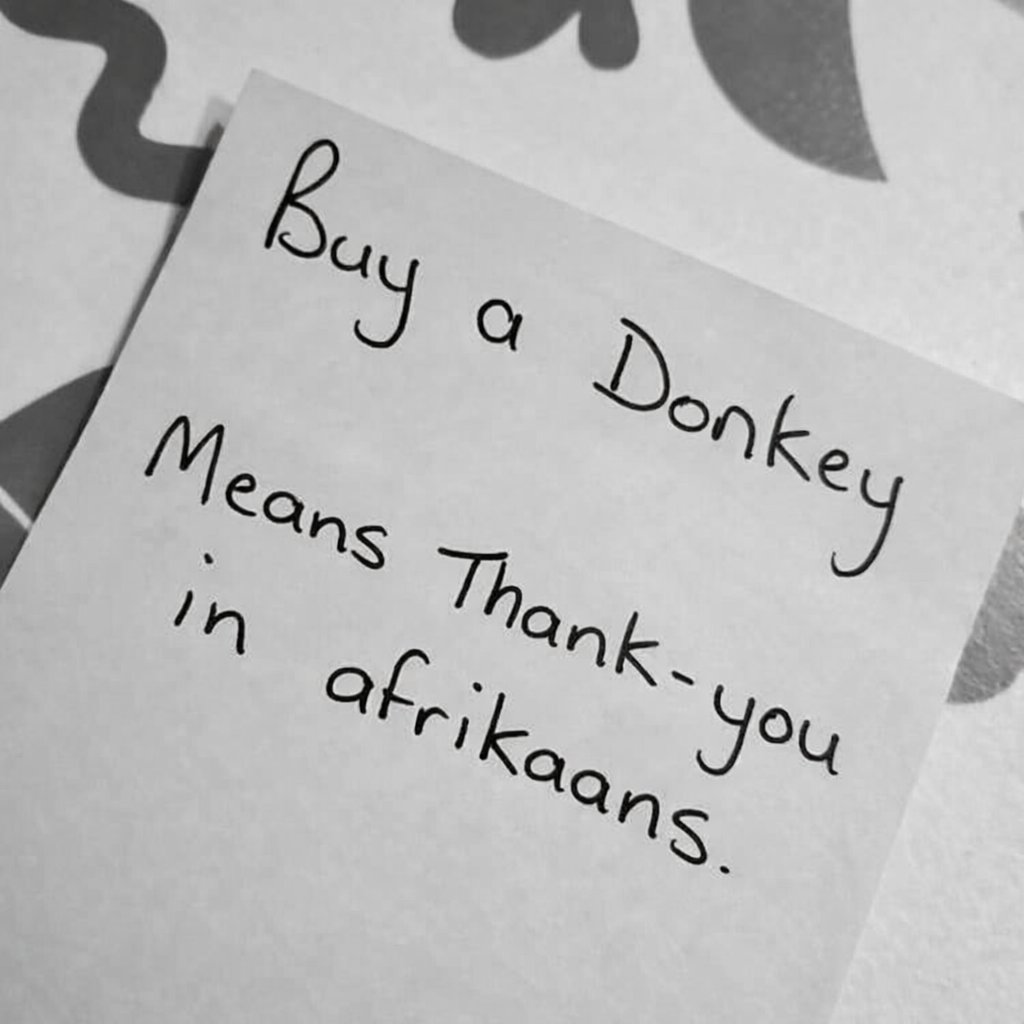 Buy a Donkey
Means Thank-you
in afrikaans.